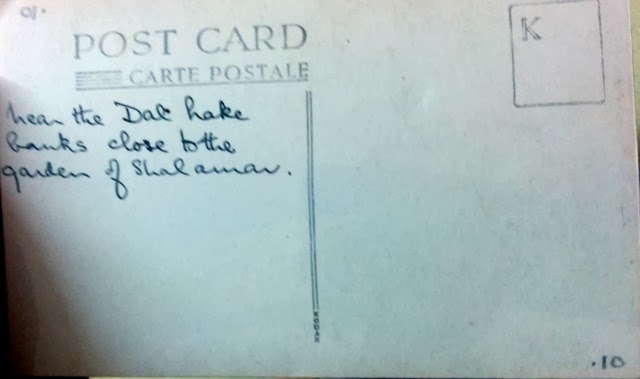 01.
POST CARD
CARTE POSTALE
K
near the Dal Lake
banks close to the
garden of Shalamar.
KODAK
.10